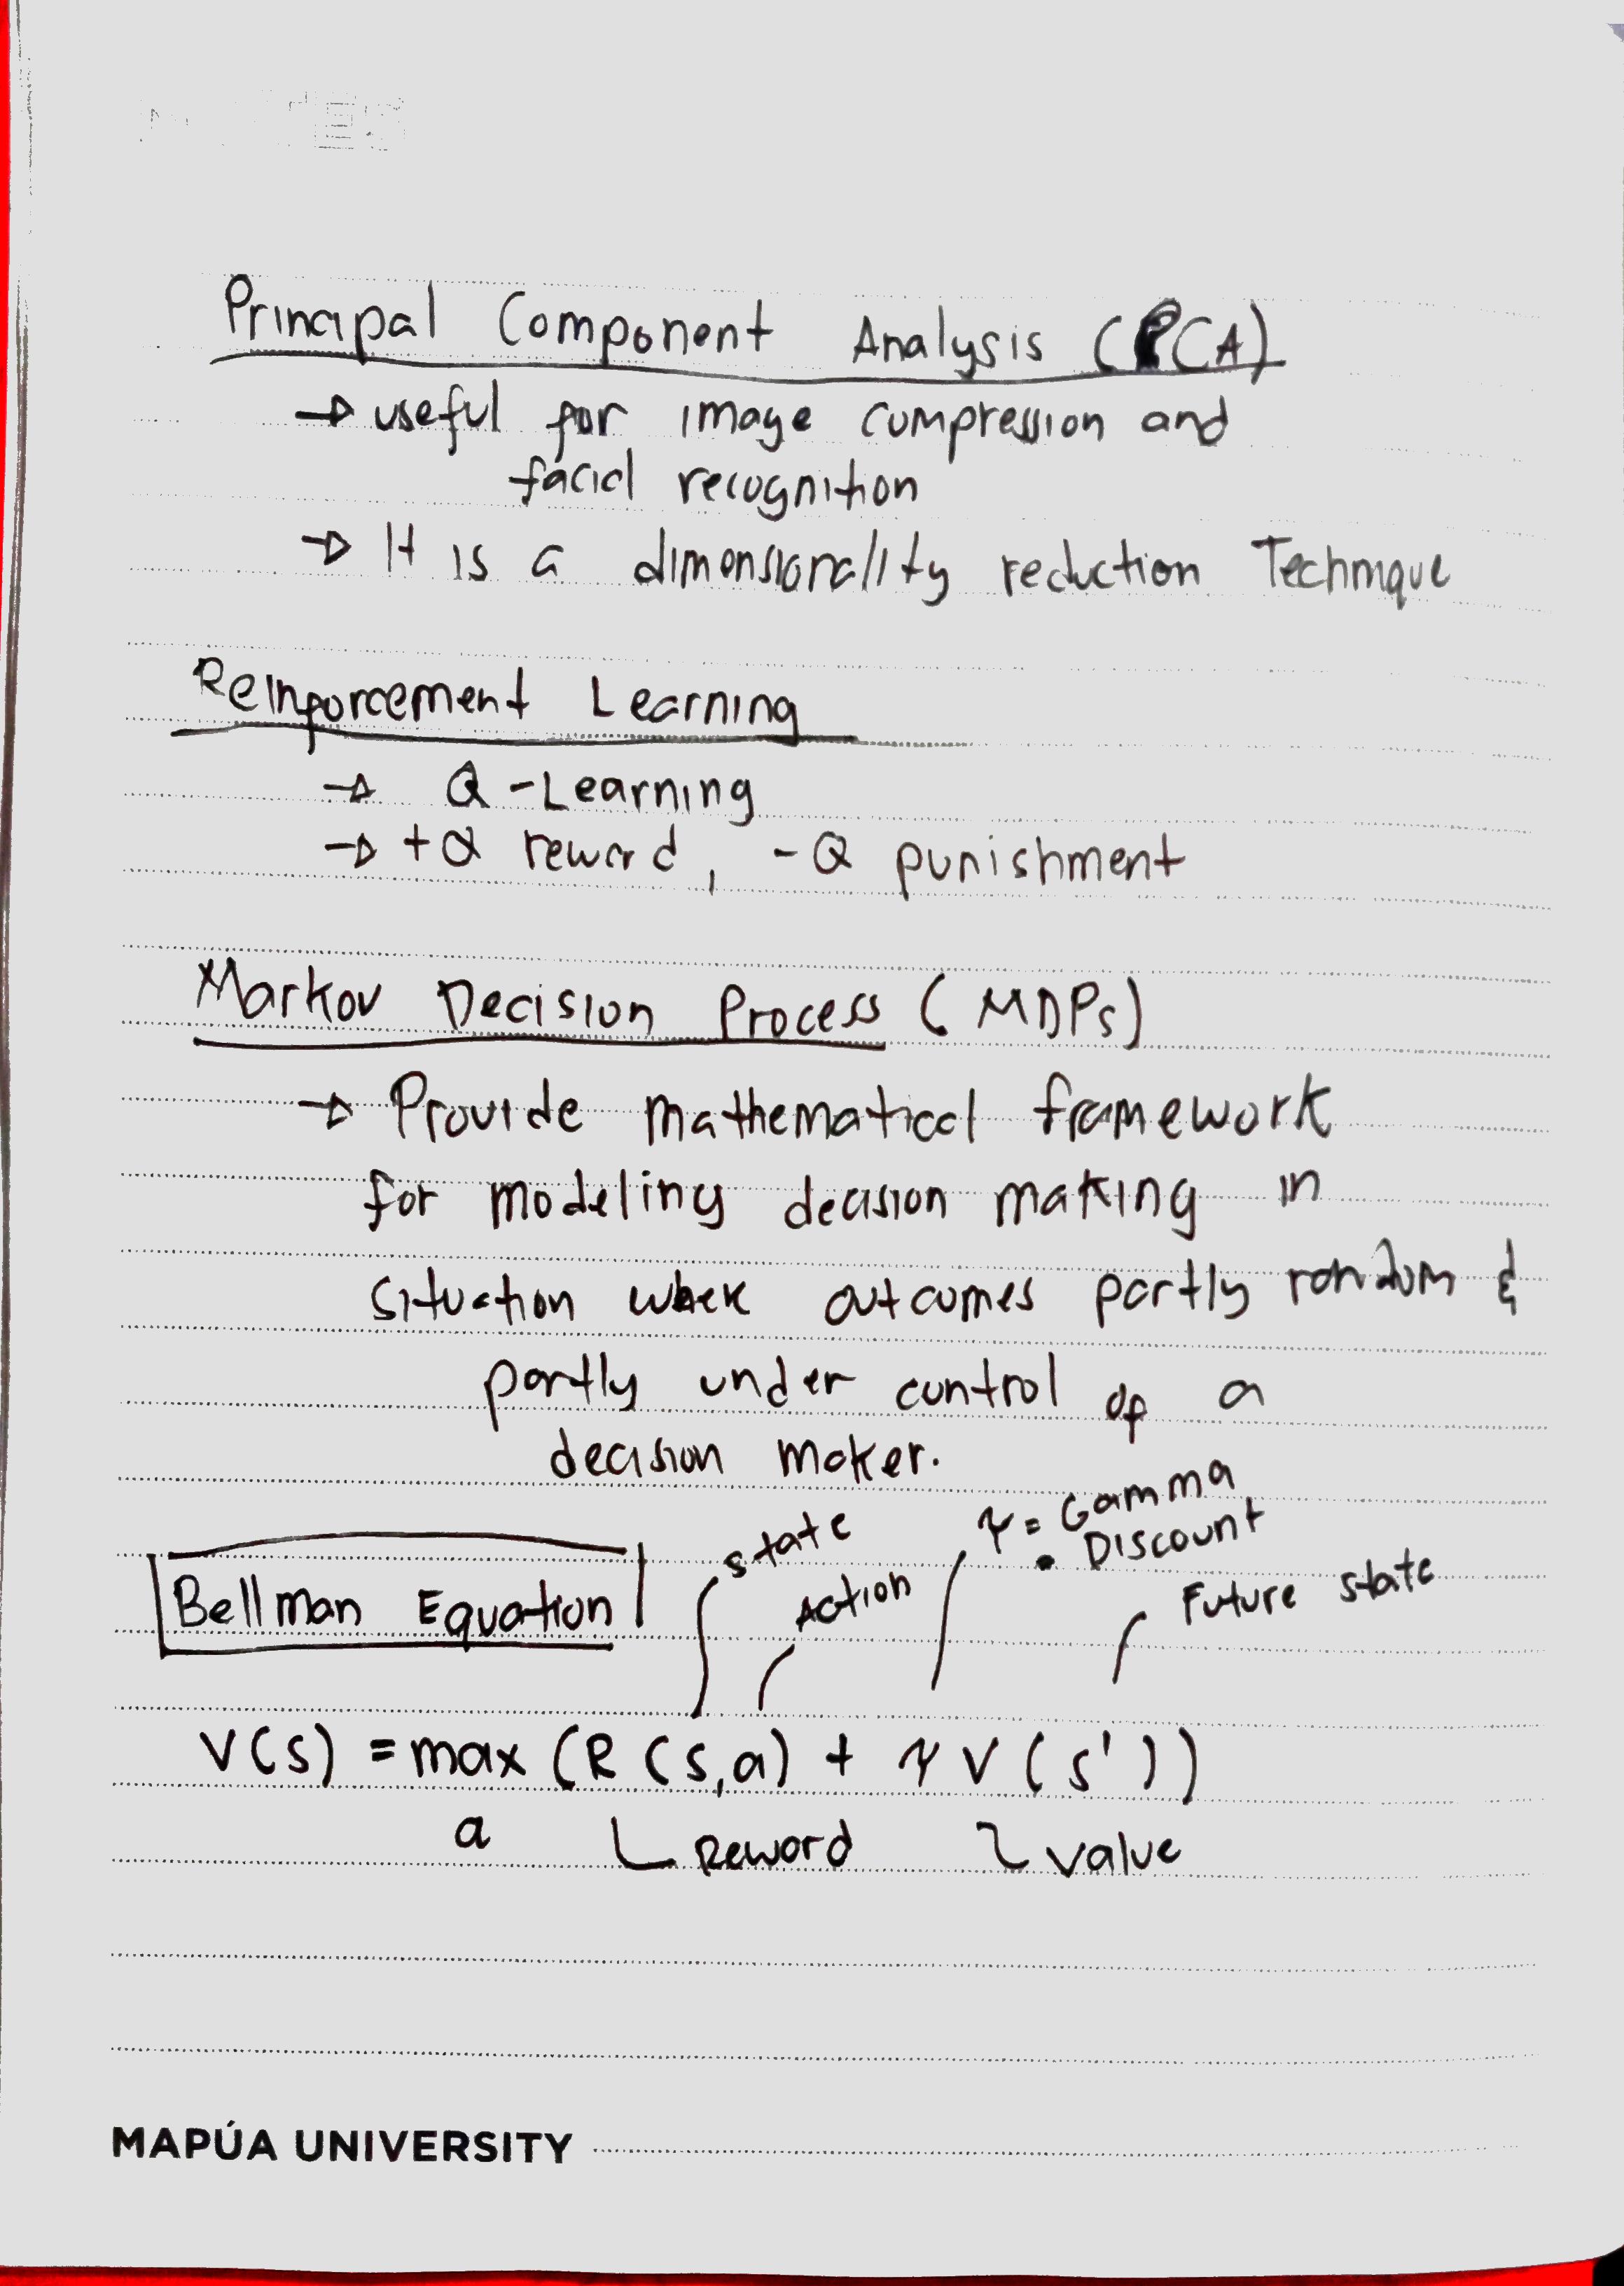 Principal Component Analysis (PCA)
→ useful for image compression and
facial recognition
→ It is a dimensionality reduction Technique
Reinforcement Learning
→ Q-Learning
→ +Q reward, -Q punishment
Markov Decision Process (MDPs)
→ Provide mathematical framework
for modeling decision making in
situation where outcomes partly random &
partly under control of a
decision maker.
γ = Gamma
• Discount
state
Action
Future state
Bellman Equation
V(s) = max (R(s,a) + γV(s'))
a
Reward
Value
MAPÚA UNIVERSITY